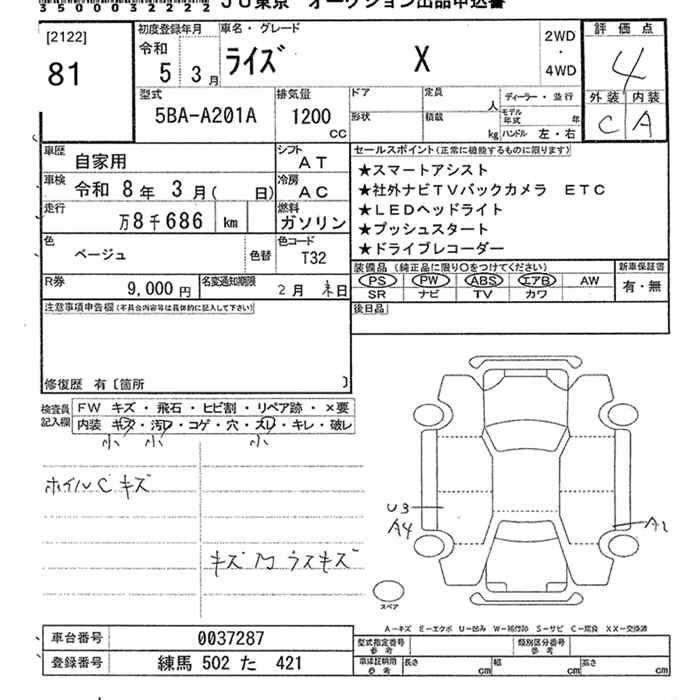 35000032222
JU東京 オークション出品申込書
[2122]
81
初度登録年月
令和
5 3月
車名・グレード
ライズ X
2WD
・
4WD
評価点
4
外装 内装
C A
型式
5BA-A201A
排気量
1200
cc
ドア
形状
定員
人
積載
kg
ディーラー・並行
モデル年式 年
ハンドル 左・右
車歴
自家用
シフト
AT
車検
令和 8年 3月( 日)
冷房
AC
走行
万8千686 km
燃料
ガソリン
色
ベージュ
色替
色コード
T32
R券
9,000円
名変通知期限
2月 末日
セールスポイント(正常に機能するものに限ります)
★スマートアシスト
★社外ナビTVバックカメラ ETC
★LEDヘッドライト
★プッシュスタート
★ドライブレコーダー
装備品(純正品に限り○をつけてください)
新車保証書
PS PW ABS エアB AW
SR ナビ TV カワ
有・無
後日品
注意事項申告欄(不具合内容等は具体的に記入して下さい)
修復歴 有[箇所 ]
検査員
記入欄
FW キズ・飛石・ヒビ割・リペア跡・×要
内装 キズ・汚レ・コゲ・穴・スレ・キレ・破レ
小 小 小
ホイルCキズ
U3
A4
A1
スペア
A－キズ E－エクボ U－凹み W－補修跡 S－サビ C－腐食 XX－交換済
車台番号 0037287
登録番号 練馬 502 た 421
型式指定番号
参考
類別区分番号
参考
車庫証明用
参考
長さ cm
幅 cm
高さ cm